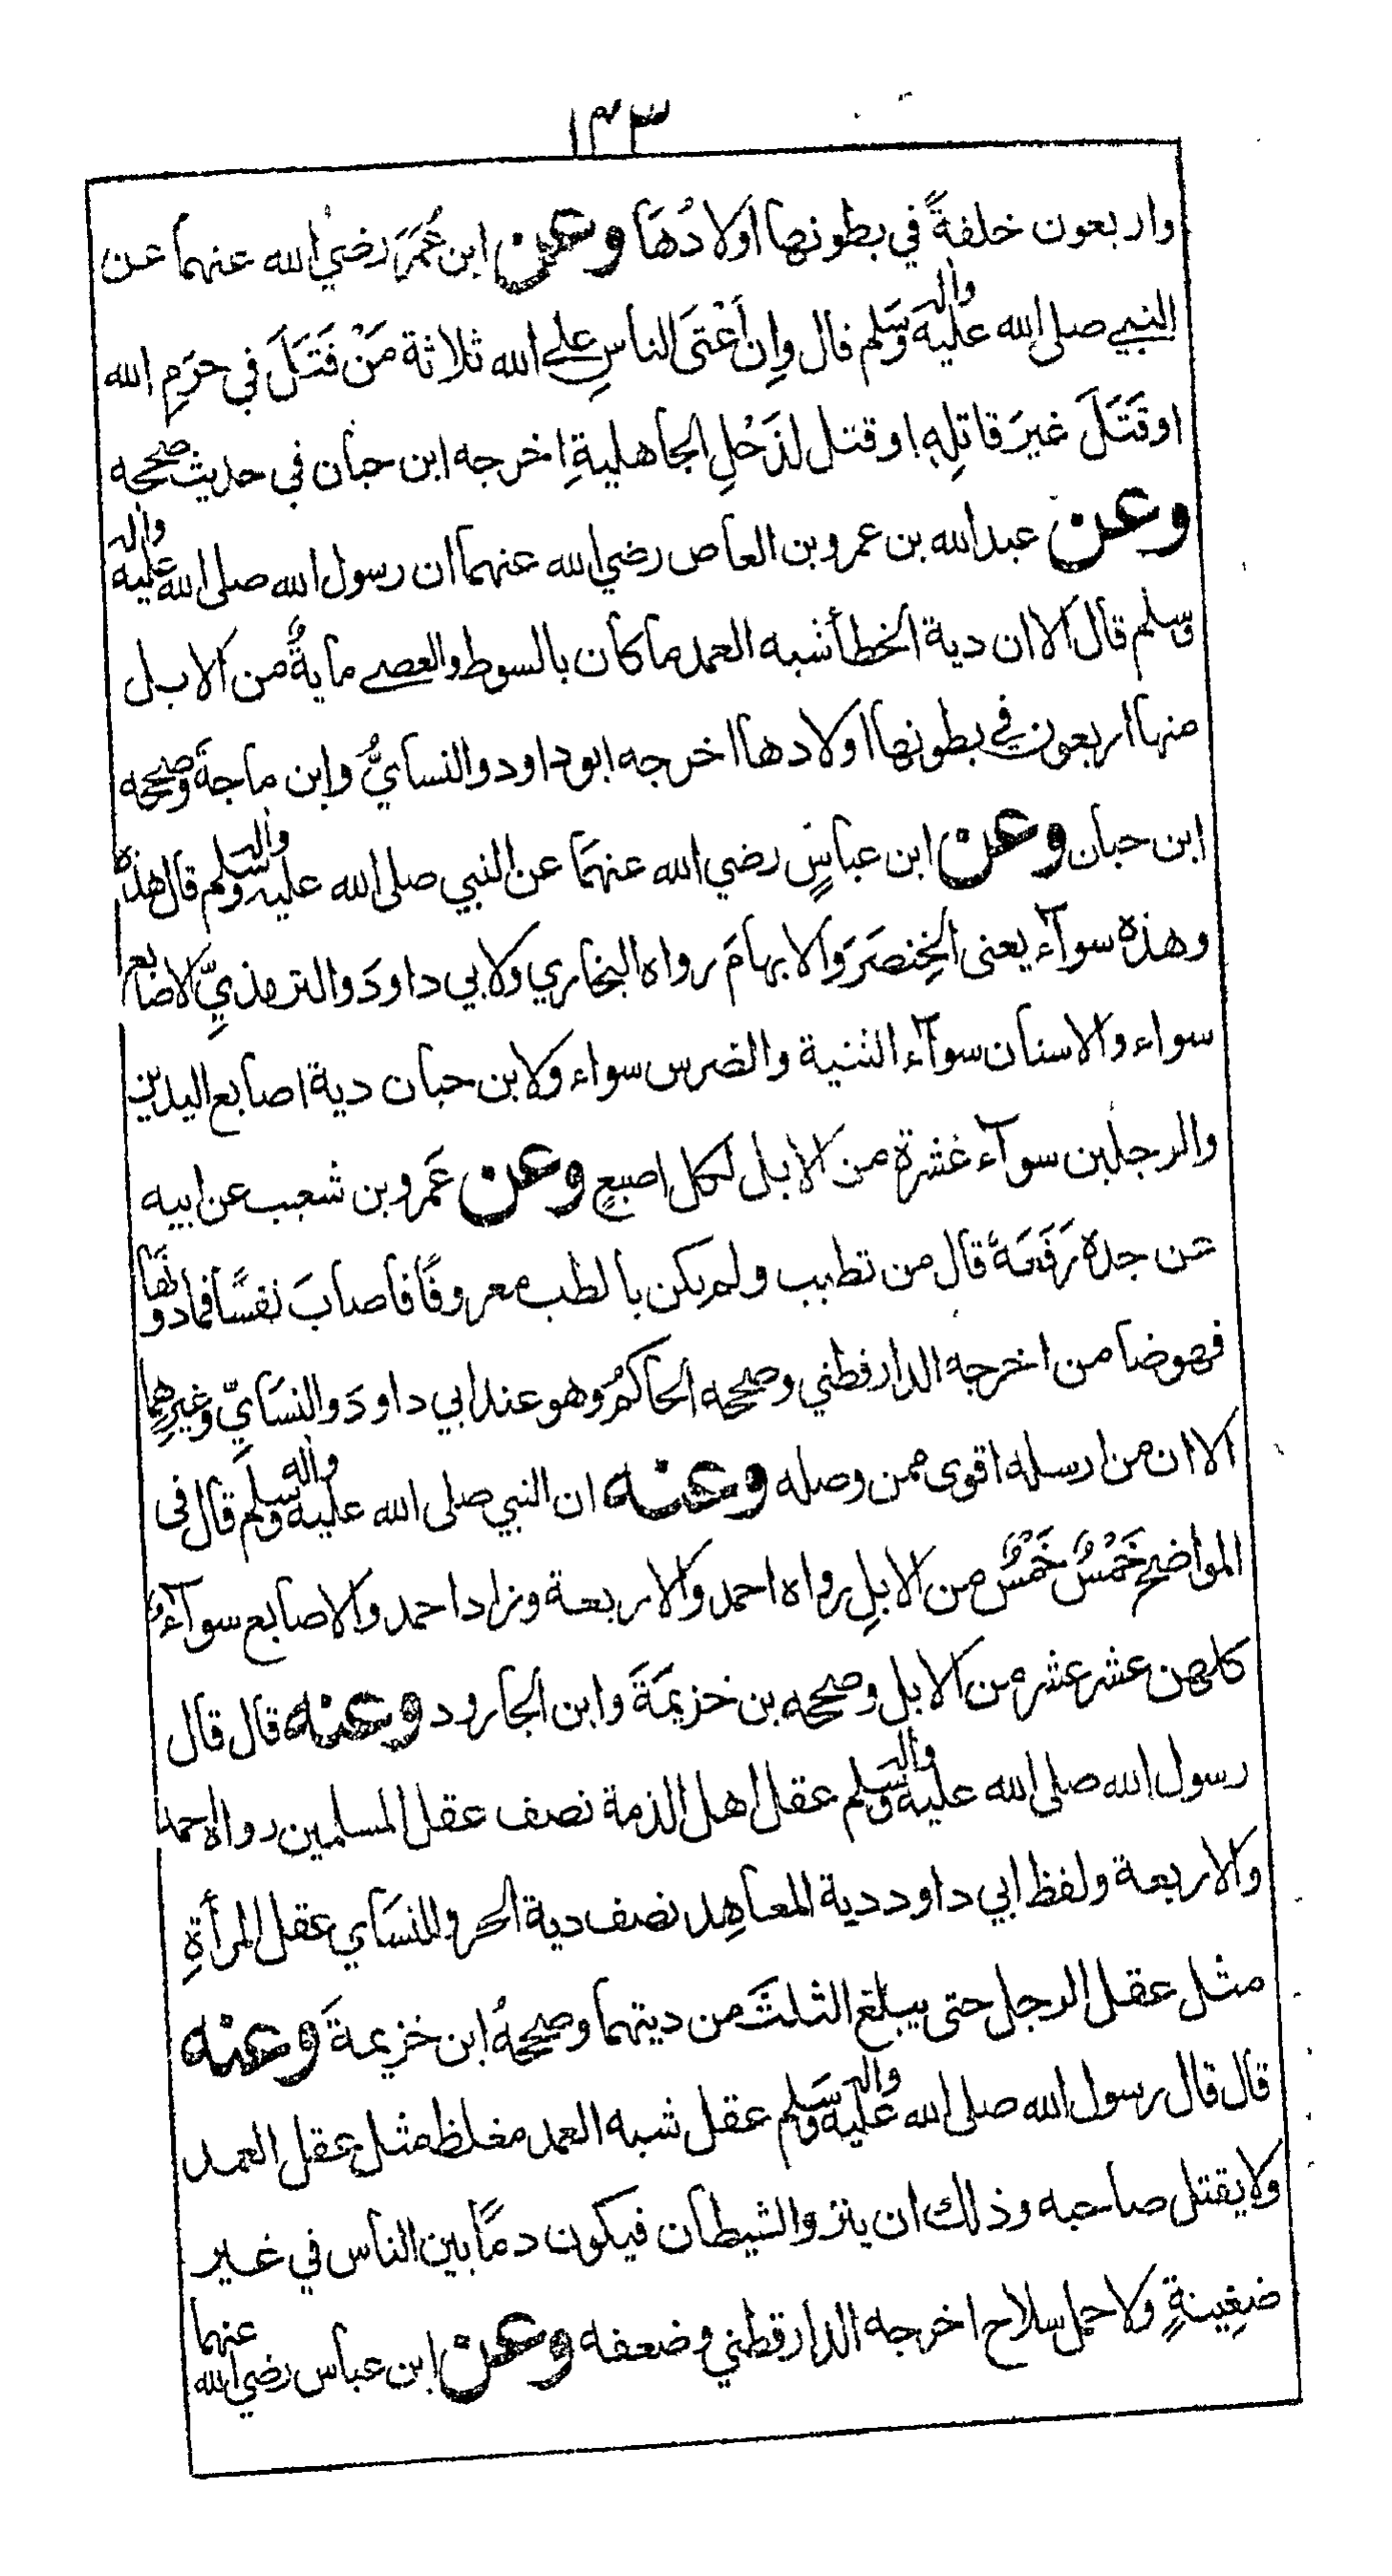 ١٤٣
واربعون خلفةً في بطونها اولادُهَا وعن ابن عُمَرَ رضي الله عنهما عن
النبي صلى الله عليه واله وسلم قال وإن أَعْتَى الناسِ على الله ثلاثة مَنْ قَتَلَ في حرَمِ الله
اوقَتَلَ غيرَ قاتلِهِ اوقتل لذَحْلِ الجاهليةِ اخرجه ابن حبان في حديث صححه
وعن عبد الله بن عمرو بن العاص رضي الله عنهما ان رسول الله صلى الله عليه واله
وسلم قال الا ان دية الخطأ شبه العمد ما كان بالسوط والعصى مايةٌ من الابل
منها اربعون في بطونها اولادها اخرجه ابو داود والنسايُّ وابن ماجةَ وصححه
ابن حبان وعن ابن عباسٍ رضي الله عنهمَا عن النبي صلى الله عليه واله وسلم قال هذه
وهذه سوآء يعنى الخِنصَرَ والابهامَ رواه البخاري ولابي داودَ والترمذيِّ الاصابع
سواء والاسنان سوآء الثنية والضرس سواء ولابن حبان دية اصابع اليدين
والرجلين سوآء عشرة من الابل لكل اصبعٍ وعن عَمرو بن شعيب عن ابيه
عن جده رَفَعَهُ قال من تطبب ولم يكن بالطب معروفًا فاصابَ نفسًا فما دونَها
فهو ضامن اخرجه الدارقطني وصححه الحاكمُ وهو عند ابي داودَ والنسَايِّ وغيرِهِما
الا ان من ارسله اقوى ممن وصله وعنه ان النبي صلى الله عليه واله وسلم قال في
المواضحِ خَمْسٌ خَمْسٌ من الابلِ رواه احمد والاربعة وزاد احمد والاصابع سوآءٌ
كلهن عشر عشر من الابل وصححه بن خزيمَةَ وابن الجارود وعنه قال قال
رسول الله صلى الله عليه واله وسلم عقل اهل الذمة نصف عقل المسلمين رواه احمد
والاربعة ولفظ ابي داود دية المعاهِد نصف دية الحر وللنسَاي عقل المرأةِ
مثل عقل الرجل حتى يبلغ الثلثَ من ديتهما وصححهُ ابن خزيمةَ وعنه
قال قال رسول الله صلى الله عليه واله وسَلم عقل شبه العمد مغلظ مثل عقل العمد
ولا يقتل صاحبه وذلك ان ينزو الشيطان فيكون دمًا بين الناس في غير
ضغِينةٍ ولا حمل سلاح اخرجه الدارقطني وضعفه وعن ابن عباس رضي الله عنهما